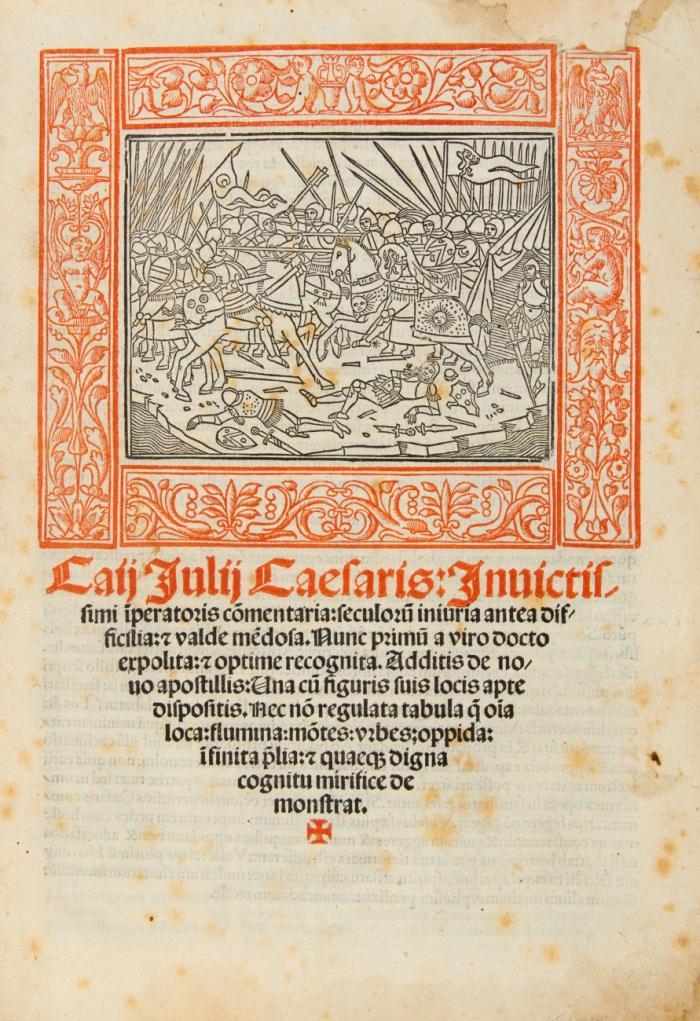 Caij Julij Caesaris: Inuictis-
simi īperatoris cōmentaria: seculorū iniuria antea dif-
ficilia: ⁊ valde mēdosa. Nunc primū a viro docto
expolita: ⁊ optime recognita. Additis de no-
uo apostillis: Una cū figuris suis locis apte
dispositis. Nec nō regulata tabula q̄ oīa
loca: flumina: mōtes: vrbes; oppida:
īfinita p̄lia: ⁊ quaecꝫ digna
cognitu mirifice de
monstrat.
✠